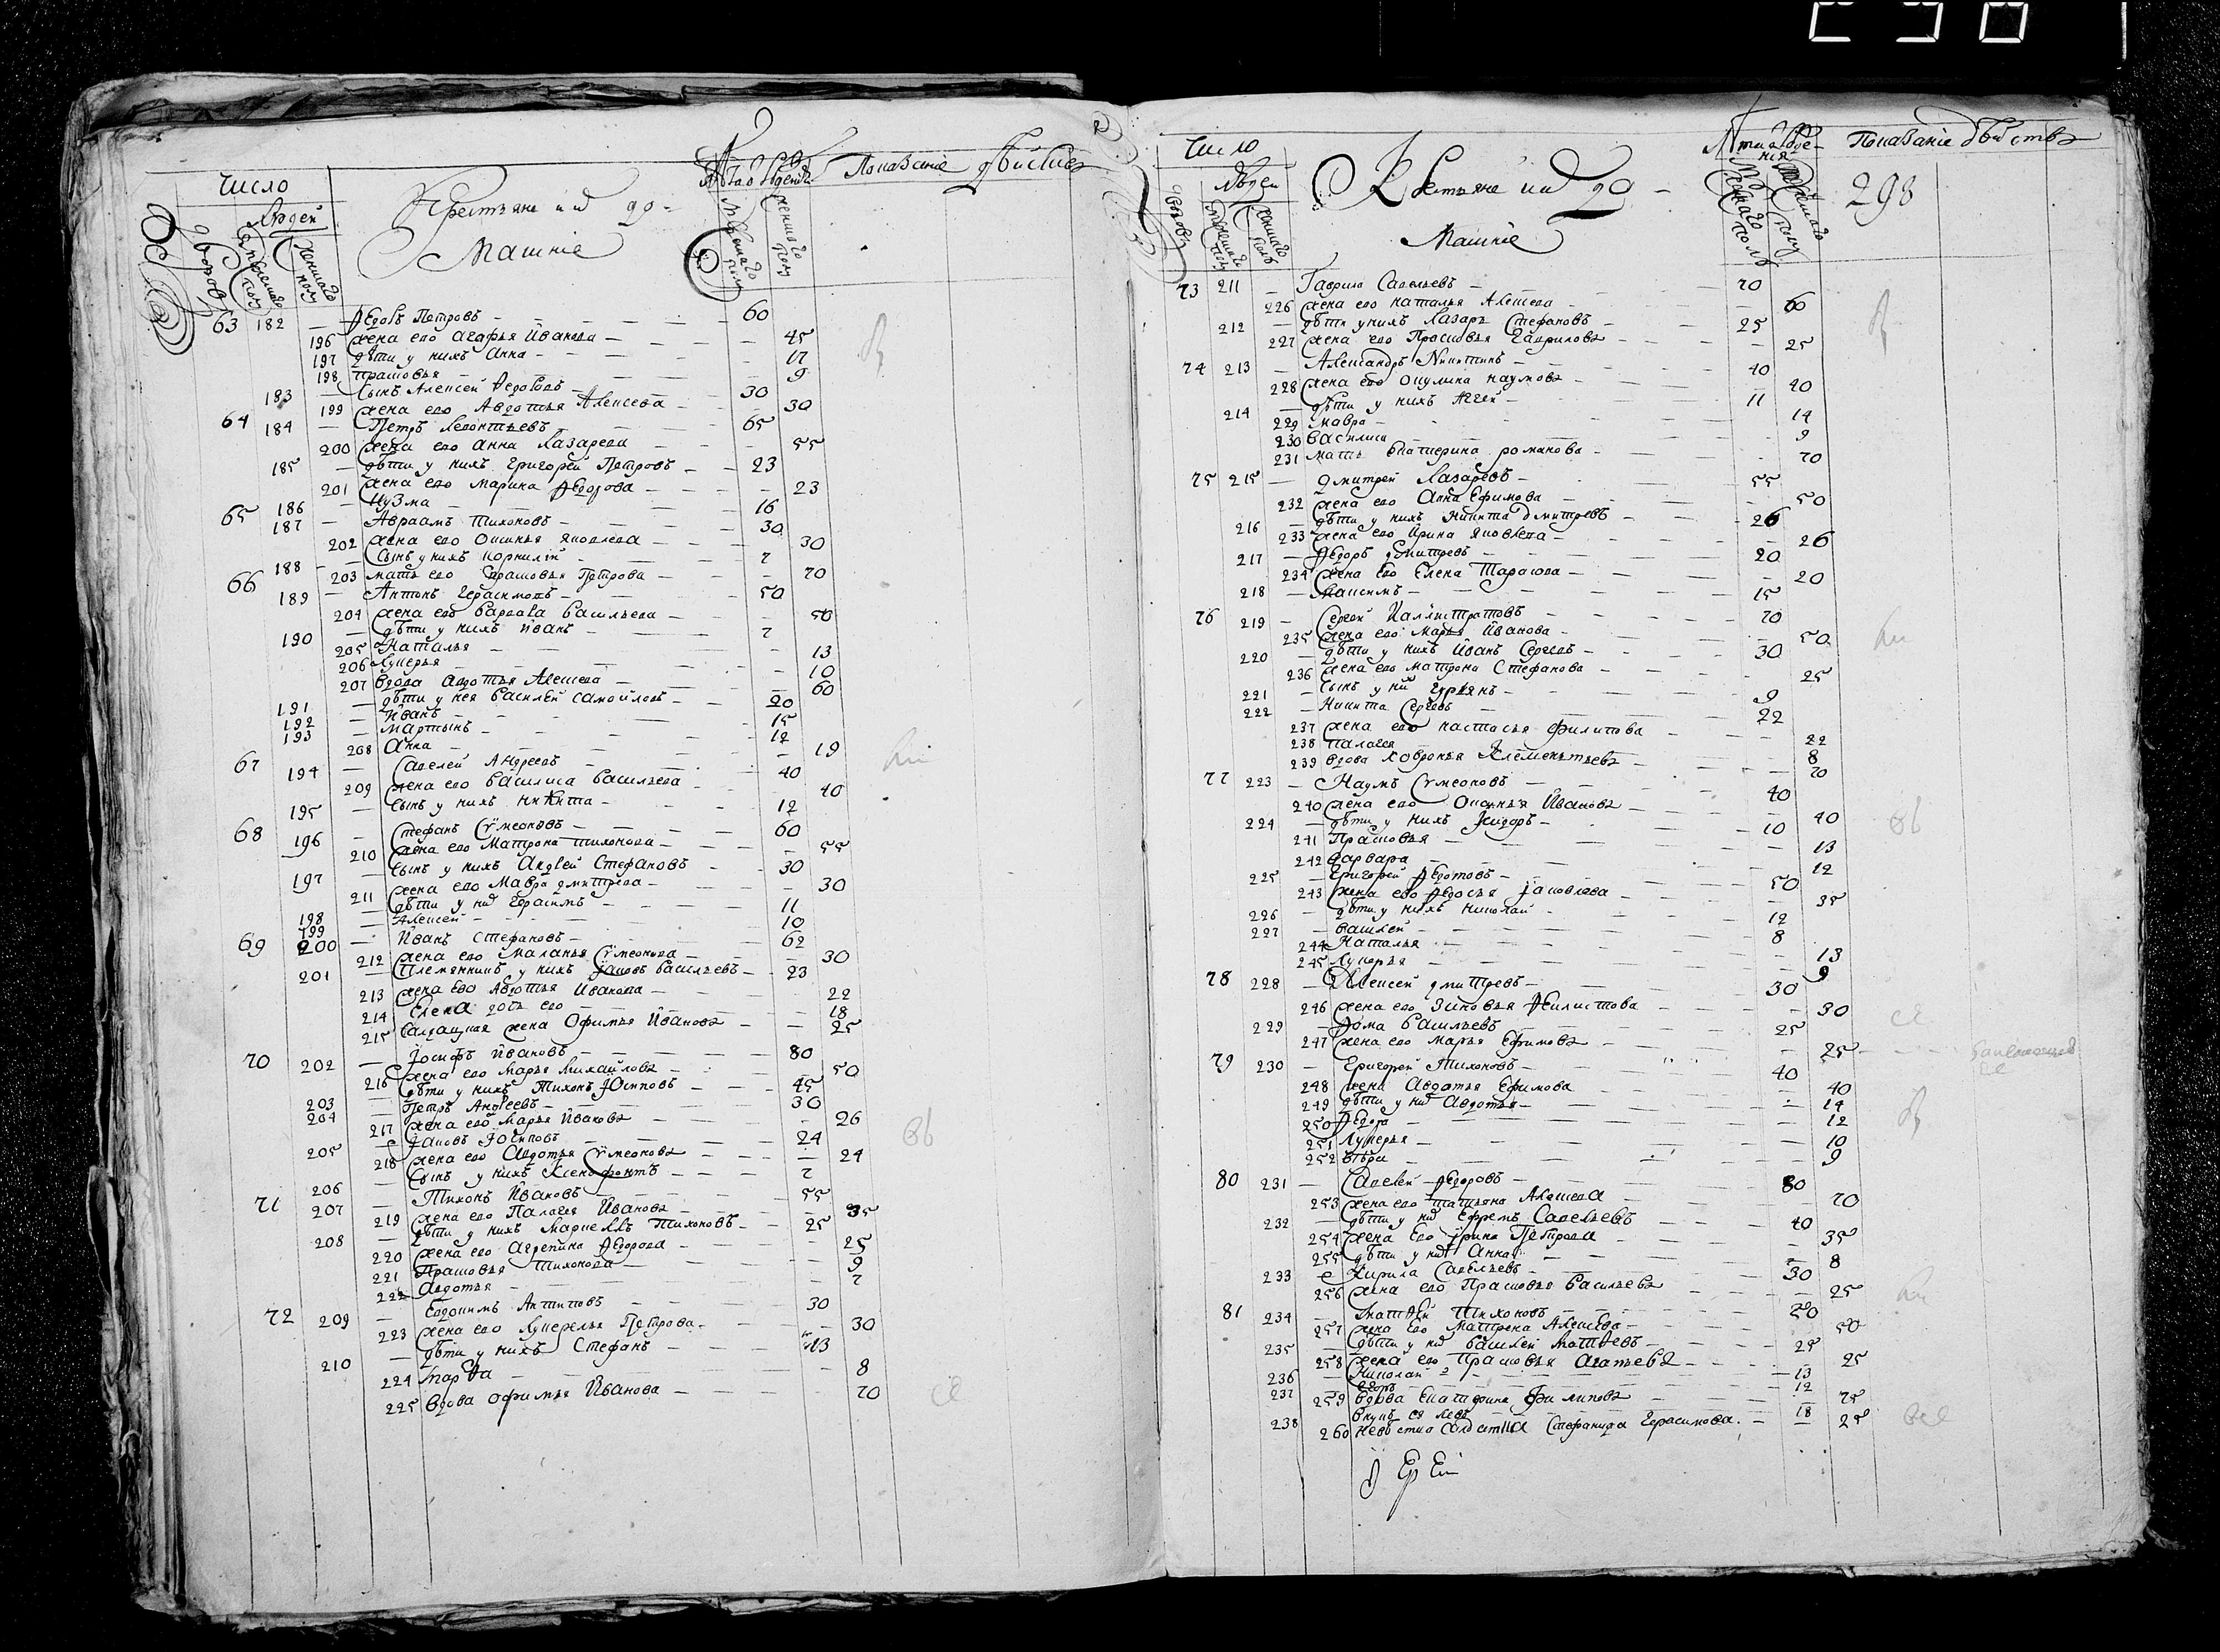 Число
Людей
дворовъ
мужескаго полу
женскаго полу
Крестьяне и ихъ до=
машніе
мужескаго полу
женскаго полу
Показаніе действа
63 182 — Ѳедоръ Петровъ — 60
196 жена его Агафья Иванова — 45
197 дѣти у нихъ Анна — 17
198 Прасковья — 9
183 — сынъ Алексей Ѳедоровъ — 30
199 жена его Авдотья Алексеева — 30
64 184 — Петръ Леонтьевъ — 65
200 жена его Анна Лазарева — 55
185 — дѣти у нихъ Григорей Петровъ — 23
201 жена его Марина Ѳедорова — 23
186 — Кузма — 16
65 187 — Авраамъ Тихоновъ — 30
202 жена его Ксинья Яковлева — 30
188 — сынъ у нихъ Корнилій — 7
203 мать его Прасковья Петрова — 70
66 189 — Антонъ Герасимовъ — 50
204 жена его Варвара Васильева — 50
190 — дѣти у нихъ Иванъ — 7
205 Наталья — 13
206 Лукерья — 10
207 вдова Авдотья Алексеева — 60
191 — дѣти у нея Василей Самойловъ — 20
192 — Иванъ — 15
193 — Мартынъ — 12
208 Анна — 19
67 194 — Савелей Андреевъ — 40
209 жена его Василиса Васильева — 40
195 — сынъ у нихъ Никита — 12
68 196 — Стефанъ Сумеоновъ — 60
210 жена его Матрона Тихонова — 55
197 — сынъ у нихъ Андрей Стефановъ — 30
211 жена его Мавра Дмитрева — 30
198 — дѣти у них Герасимъ — 11
199 — Алексей — 10
69 200 — Иванъ Стефановъ — 62
212 жена его Маланья Сумеонова — 30
201 — племянникъ у нихъ Іаковъ Васильевъ — 23
213 жена его Авдотья Иванова — 22
214 Елена дочь его — 18
215 салдацкая жена Офимья Иванова — 25
70 202 — Іосифъ Ивановъ — 80
216 жена его Марья Михайлова — 50
203 — дѣти у нихъ Тихонъ Іосиповъ — 45
204 — Петръ Андреевъ — 30
217 жена его Марья Иванова — 26
205 — Іаковъ Іосиповъ — 24
218 жена его Авдотья Сумеонова — 24
206 — сынъ у нихъ Ксенофонтъ — 7
71 207 — Тихонъ Ивановъ — 55
219 жена его Палагея Иванова — 35
208 — дѣти у нихъ Маркеллъ Тихоновъ — 25
220 жена его Агрепина Ѳедорова — 25
221 Прасковья Тихонова — 9
222 Авдотья — 7
72 209 — Евдокимъ Антиповъ — 30
223 жена его Лукерья Петрова — 30
210 — дѣти у нихъ Стефанъ — 13
224 Марѳа — 8
225 вдова Офимья Иванова — 70
Число
людей
дворовъ
мужескаго полу
женскаго полу
Крестьяне и их до-
машніе
Показаніе действа
298
73 211 — Гаврило Савельевъ — 70
226 жена его Наталья Алексеева — 60
212 — дѣти у нихъ Лазаръ Стефановъ — 25
227 жена его Прасковья Гаврилова — 25
74 213 — Александръ Никитинъ — 40
228 жена его Окулина Наумова — 40
214 — дѣти у нихъ Аггей — 11
229 Мавра — 14
230 Василиса — 9
231 мать Екатерина Романова — 70
75 215 — Дмитрей Лазаревъ — 55
232 жена его Анна Ефимова — 50
216 — дѣти у нихъ Никита Дмитревъ — 26
233 жена его Ирина Яковлева — 26
217 — Ѳедоръ Дмитревъ — 20
234 жена его Елена Тарасова — 20
218 — Максимъ — 15
76 219 — Сергей Каллистратовъ — 70
235 жена его Марья Иванова — 50
220 — дѣти у нихъ Иванъ Сергеевъ — 30
236 жена его Матрона Стефанова — 25
221 — сынъ у них Гурьянъ — 9
222 — Никита Сергеевъ — 22
237 жена его Настасья Филипова — 22
238 Палагея — 8
239 вдова Ховронья Клементьева — 70
77 223 — Наумъ Сумеоновъ — 40
240 жена его Оксинья Иванова — 40
224 — дѣти у нихъ Исидоръ — 10
241 Прасковья — 13
242 Варвара — 12
225 — Григорей Ѳедотовъ — 50
243 жена его Ѳедосья Іаковлева — 35
226 — дѣти у нихъ Николай — 12
227 — Василей — 8
244 Наталья — 13
245 Лукерья — 9
78 228 — Алексей Дмитревъ — 30
246 жена его Зиновья Ѳилистова — 30
229 — Ѳома Васильевъ — 25
247 жена его Марья Ефимова — 25
79 230 — Григорей Тихоновъ — 40
248 жена Авдотья Ефимова — 40
249 дѣти у них Авдотья — 14
250 Ѳедора — 12
251 Лукерья — 10
252 Вѣра — 9
80 231 — Савелей Ѳедоровъ — 80
253 жена его Татьяна Алексеева — 70
232 — дѣти у них Ефремъ Савельевъ — 40
254 жена его Ирина Петрова — 35
255 дѣти у них Анна — 8
233 — Кирила Савельевъ — 30
256 жена его Прасковья Васильева — 25
81 234 — Матѳей Тихоновъ — 50
257 жена его Матрена Алексеева — 50
235 — дѣти у них Василей Матѳеевъ — 25
258 жена его Прасковья Агапьева — 25
236 — Николай — 13
237 — Егоръ — 12
259 вдова Екатерина Филипова — 75
238 внукъ ея Левъ — 18
260 невестка салдатка Стефанида Герасимова — 25
Іерей